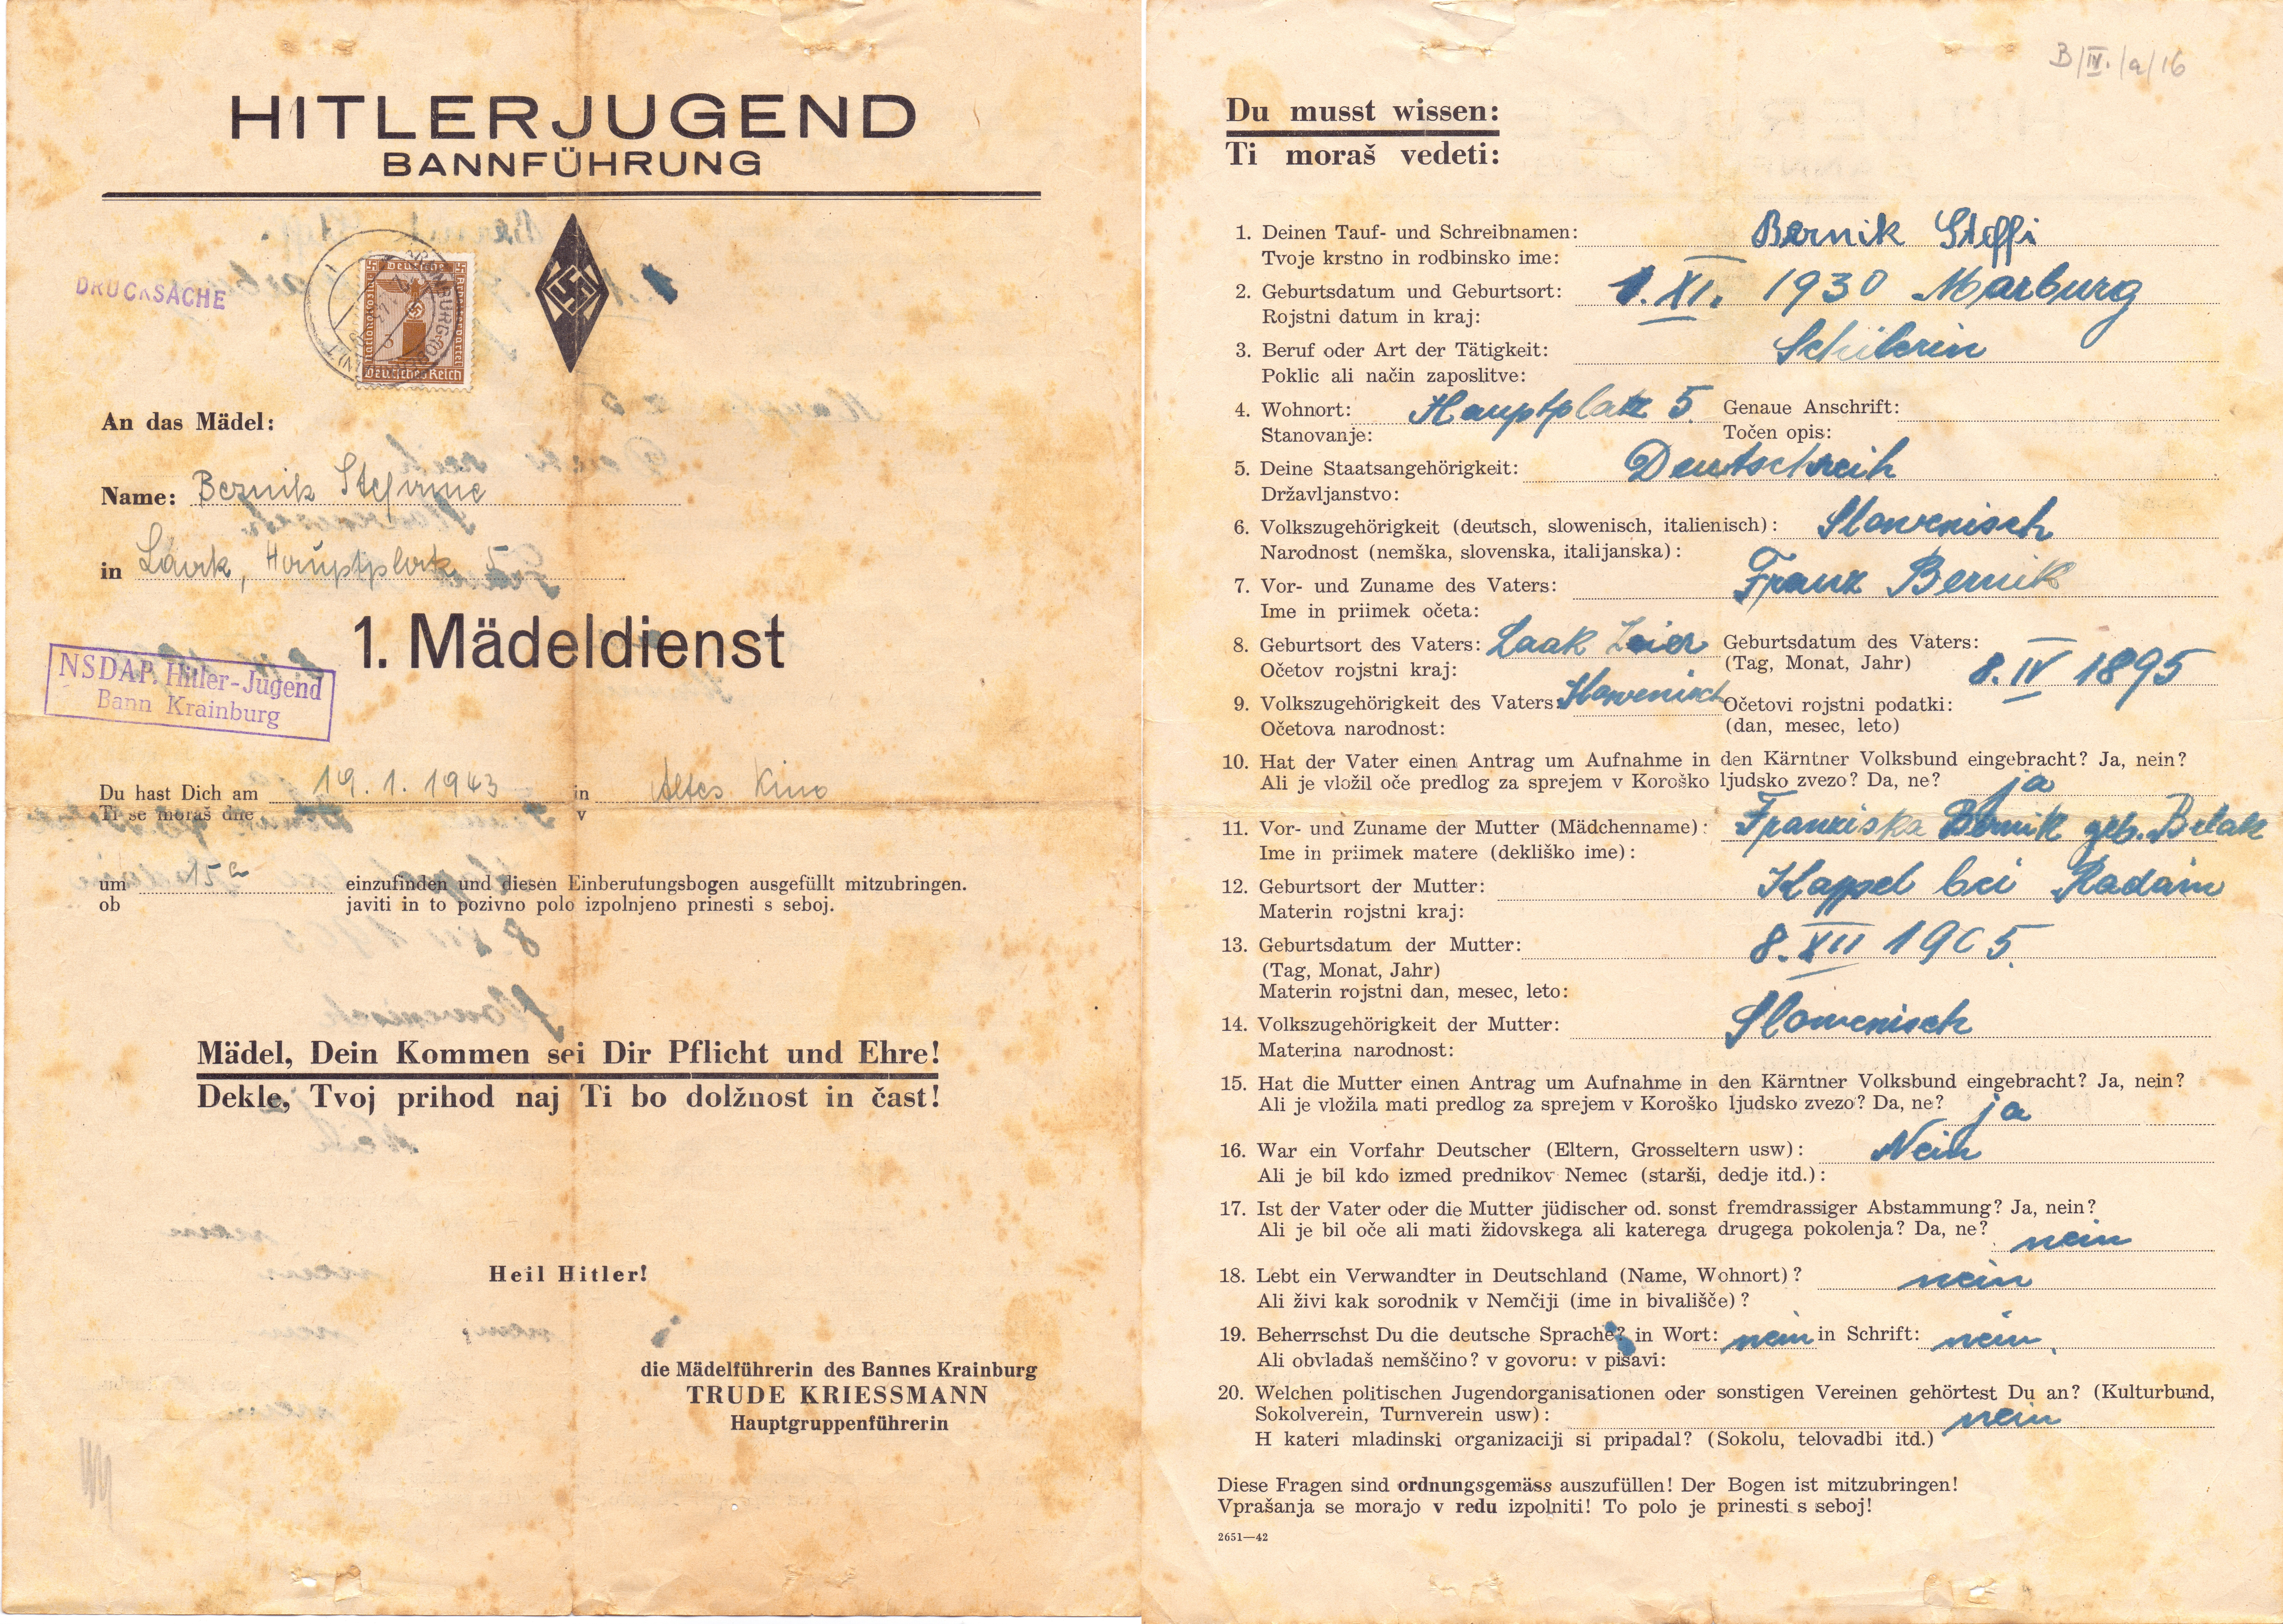 HITLERJUGEND
BANNFÜHRUNG
DRUCKSACHE
Deutsches Reich
An das Mädel:
Name: Bernik Stefanie
in Laak, Hauptplatz 5
1. Mädeldienst
NSDAP. Hitler-Jugend
Bann Krainburg
Du hast Dich am 19.1.1943 in Altes Kino
Ti se moraš dne v
um 15 h einzufinden und diesen Einberufungsbogen ausgefüllt mitzubringen.
ob javiti in to pozivno polo izpolnjeno prinesti s seboj.
Mädel, Dein Kommen sei Dir Pflicht und Ehre!
Dekle, Tvoj prihod naj Ti bo dolžnost in čast!
Heil Hitler!
die Mädelführerin des Bannes Krainburg
TRUDE KRIESSMANN
Hauptgruppenführerin
B/IV./a/16
Du musst wissen:
Ti moraš vedeti:
1. Deinen Tauf- und Schreibnamen: Bernik Steffi
Tvoje krstno in rodbinsko ime:
2. Geburtsdatum und Geburtsort: 1. XI. 1930 Marburg
Rojstni datum in kraj:
3. Beruf oder Art der Tätigkeit: Schilerin
Poklic ali način zaposlitve:
4. Wohnort: Hauptplatz 5. Genaue Anschrift:
Stanovanje: Točen opis:
5. Deine Staatsangehörigkeit: Deutschreih
Državljanstvo:
6. Volkszugehörigkeit (deutsch, slowenisch, italienisch): Slowenisch
Narodnost (nemška, slovenska, italijanska):
7. Vor- und Zuname des Vaters: Franz Bernik
Ime in priimek očeta:
8. Geburtsort des Vaters: Laak Zeier Geburtsdatum des Vaters:
Očetov rojstni kraj: (Tag, Monat, Jahr) 8. IV 1895
9. Volkszugehörigkeit des Vaters: Slowenisch Očetovi rojstni podatki:
Očetova narodnost: (dan, mesec, leto)
10. Hat der Vater einen Antrag um Aufnahme in den Kärntner Volksbund eingebracht? Ja, nein?
Ali je vložil oče predlog za sprejem v Koroško ljudsko zvezo? Da, ne? ja
11. Vor- und Zuname der Mutter (Mädchenname): Franziska Bernik geb. Belak
Ime in priimek matere (dekliško ime):
12. Geburtsort der Mutter: Kappel bei Radein
Materin rojstni kraj:
13. Geburtsdatum der Mutter: 8. XII 1905.
(Tag, Monat, Jahr)
Materin rojstni dan, mesec, leto:
14. Volkszugehörigkeit der Mutter: Slowenisch
Materina narodnost:
15. Hat die Mutter einen Antrag um Aufnahme in den Kärntner Volksbund eingebracht? Ja, nein?
Ali je vložila mati predlog za sprejem v Koroško ljudsko zvezo? Da, ne? ja
16. War ein Vorfahr Deutscher (Eltern, Grosseltern usw): Nein
Ali je bil kdo izmed prednikov Nemec (starši, dedje itd.):
17. Ist der Vater oder die Mutter jüdischer od. sonst fremdrassiger Abstammung? Ja, nein?
Ali je bil oče ali mati židovskega ali katerega drugega pokolenja? Da, ne? nein
18. Lebt ein Verwandter in Deutschland (Name, Wohnort)? nein
Ali živi kak sorodnik v Nemčiji (ime in bivališče)?
19. Beherrschst Du die deutsche Sprache? in Wort: nein in Schrift: nein.
Ali obvladaš nemščino? v govoru: v pisavi:
20. Welchen politischen Jugendorganisationen oder sonstigen Vereinen gehörtest Du an? (Kulturbund,
Sokolverein, Turnverein usw): nein
H kateri mladinski organizaciji si pripadal? (Sokolu, telovadbi itd.)
Diese Fragen sind ordnungsgemäss auszufüllen! Der Bogen ist mitzubringen!
Vprašanja se morajo v redu izpolniti! To polo je prinesti s seboj!
2651—42